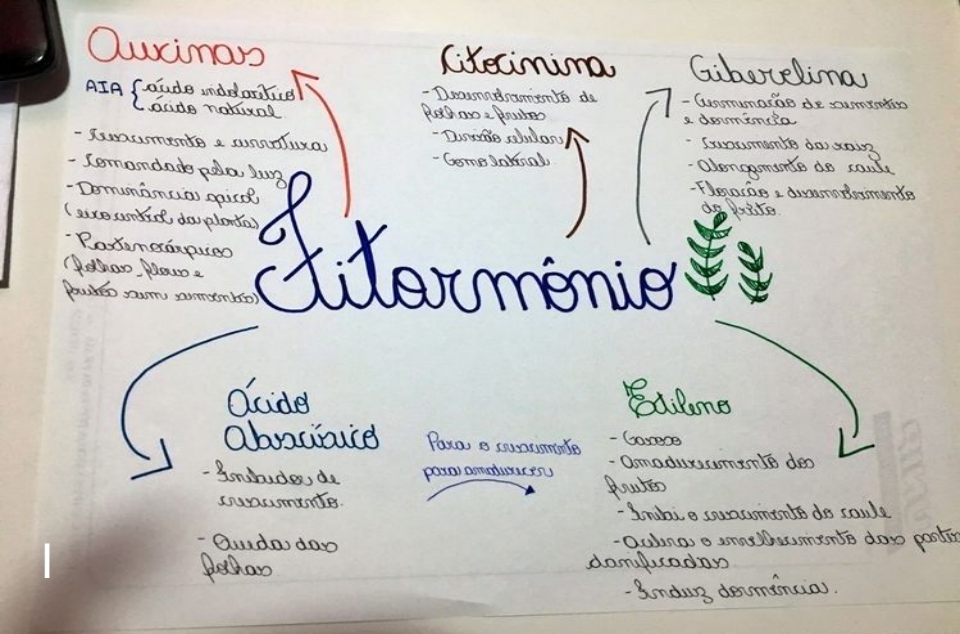 Auxinas
AIA { ácido indolacético
ácido natural
- Crescimento e curvatura
- Comandado pela luz
- Dominância apical
(eixo central da planta)
- Partenocárpicos
(folhas, flores e
frutos sem sementes)
Citocinina
- Desenvolvimento de
folhas e frutos
- Divisão celular
- Gema lateral
Giberelina
- Germinação de sementes
e dormência
- Crescimento da raiz
- Alongamento do caule
- Floração e desenvolvimento
do fruto.
Fitormônio
Ácido
Abscísico
- Inibidor de
crescimento.
- Queda das
folhas
Para o crescimento
para amadurecer
Etileno
- Gasoso
- Amadurecimento dos
frutos
- Inibi o crescimento do caule
- Acelera o envelhecimento das partes
danificadas
- Induz dormência.